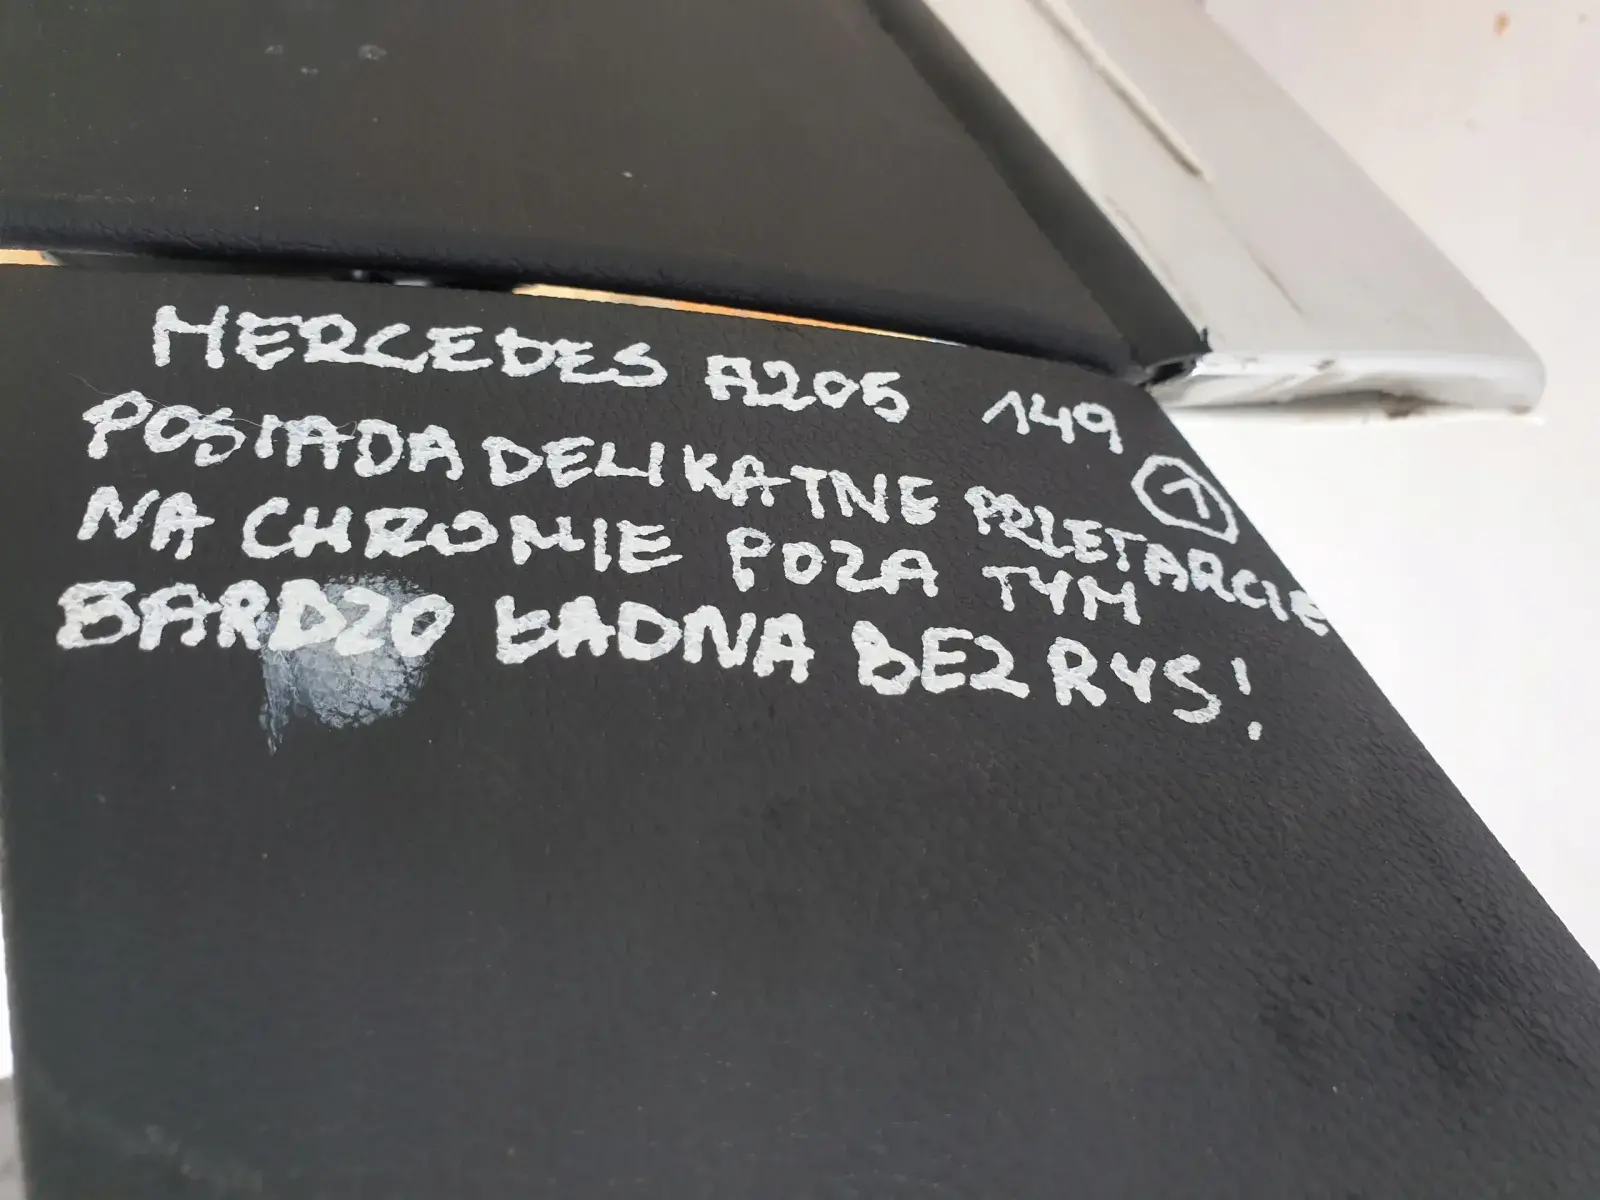 MERCEDES A205 149
①
POSIADA DELIKATNE PRZETARCIE
NA CHROMIE POZA TYM
BARDZO ŁADNA BEZ RYS!